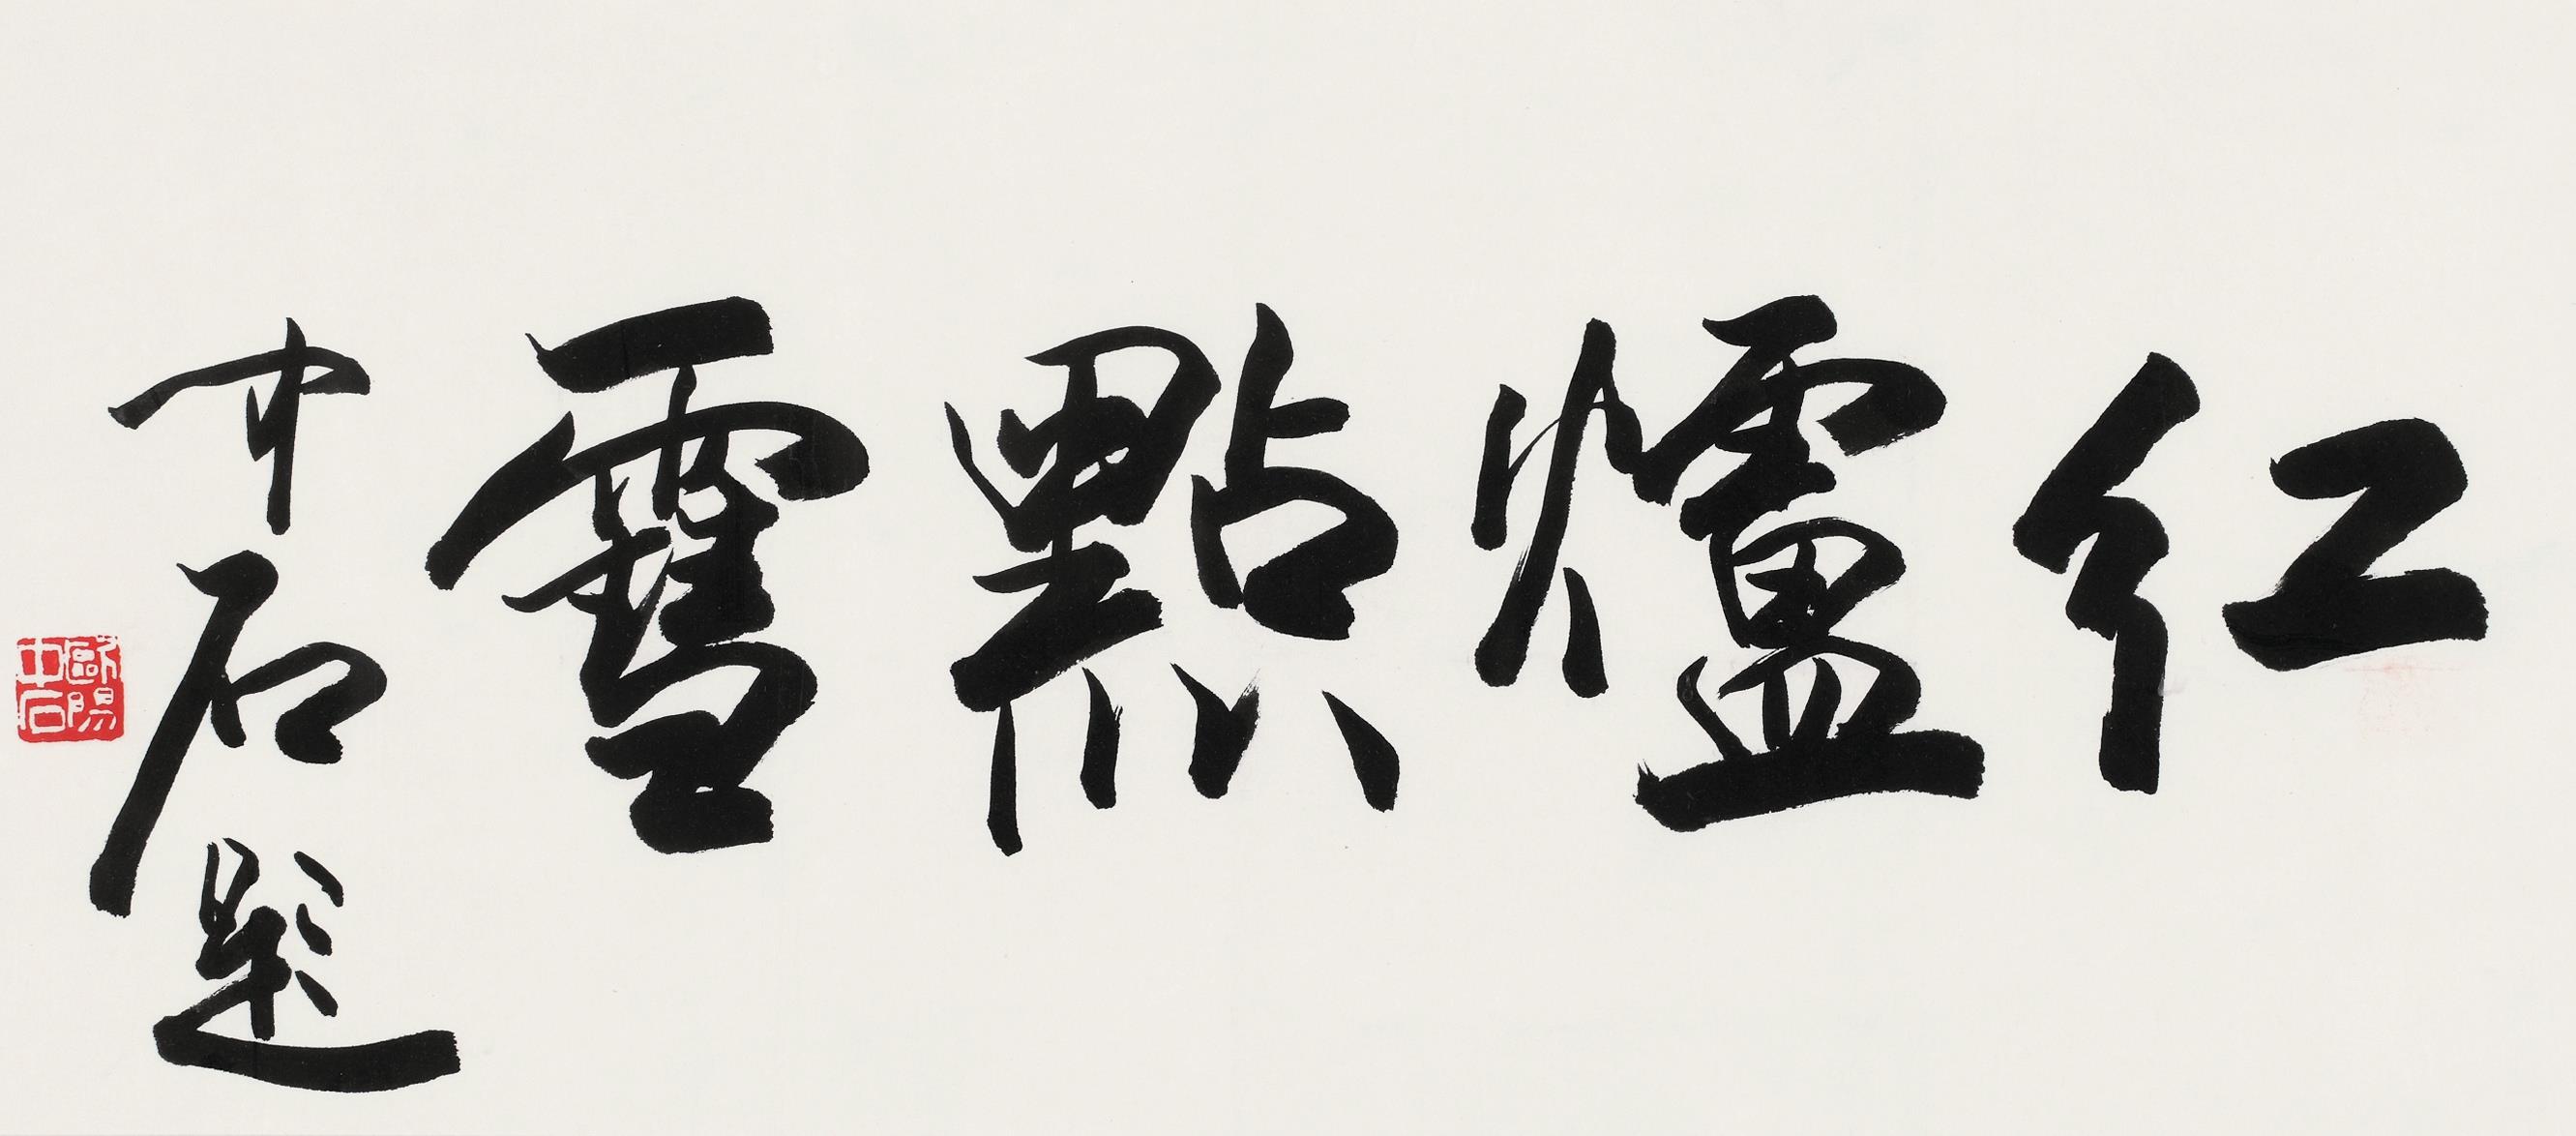 紅爐點雪
中石題
歐陽中石